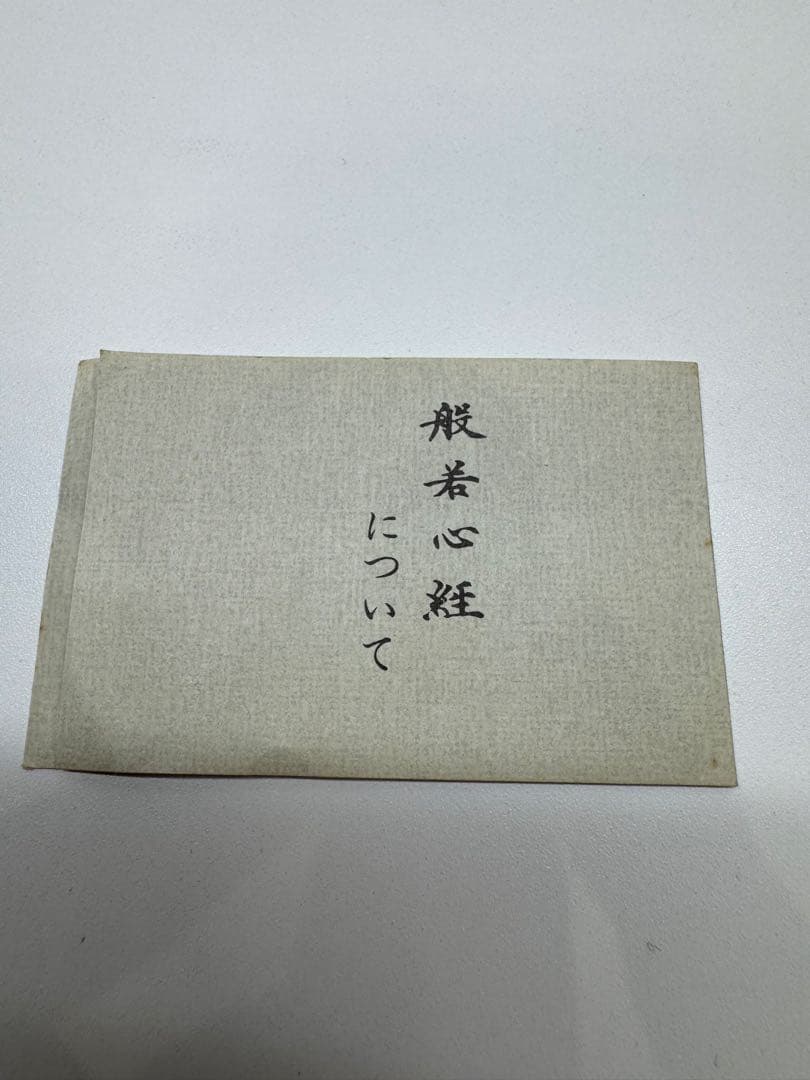 般若心経
について